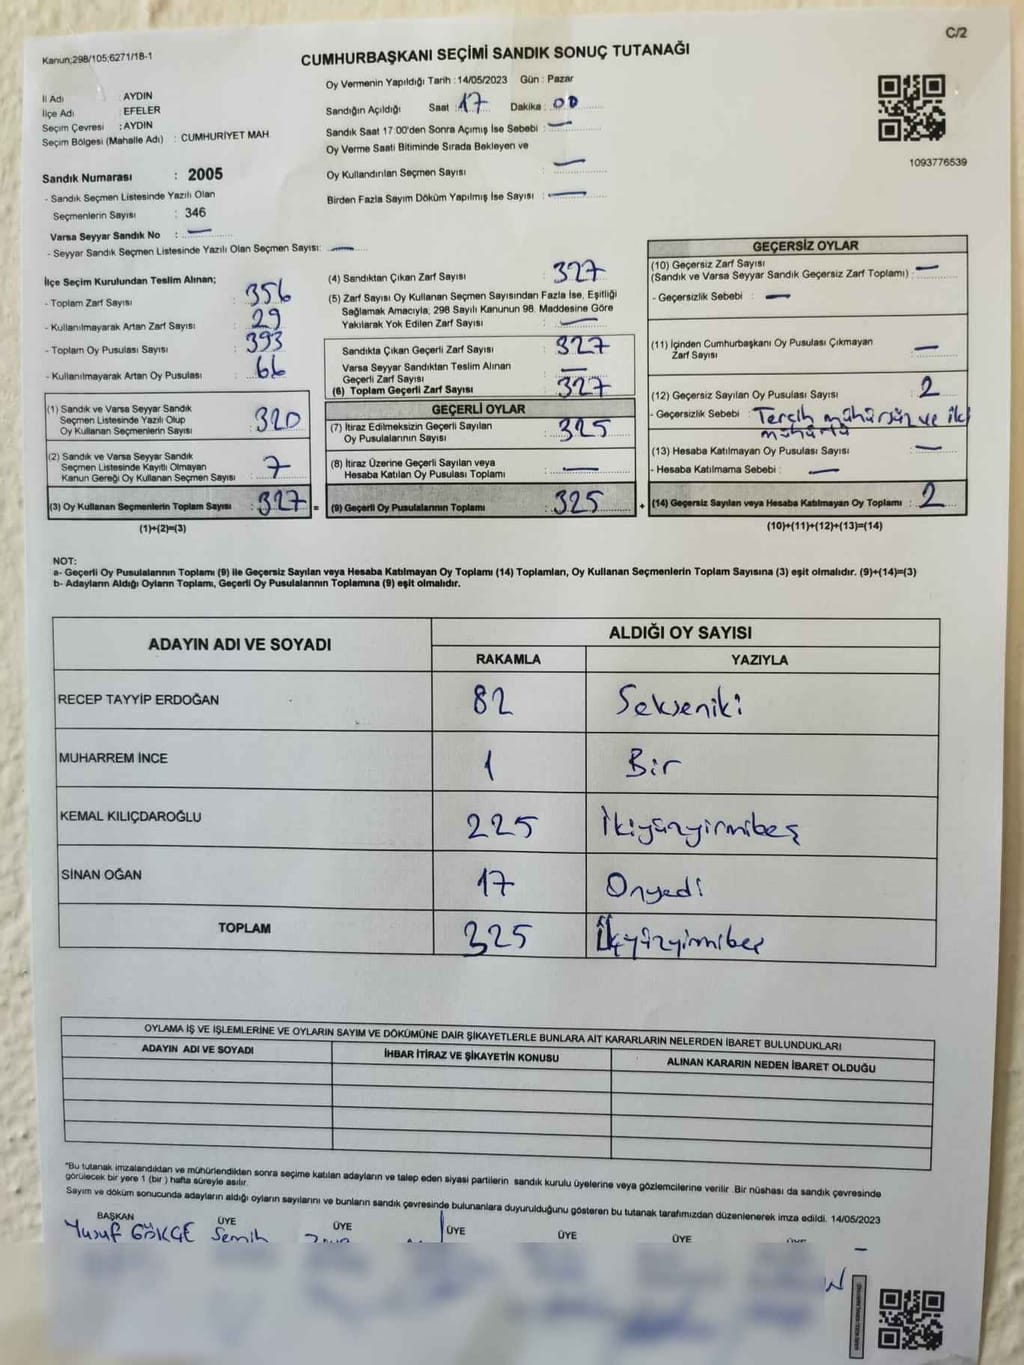 C/2
Kanun;298/105;6271/18-1
CUMHURBAŞKANI SEÇİMİ SANDIK SONUÇ TUTANAĞI
İl Adı : AYDIN
İlçe Adı : EFELER
Seçim Çevresi : AYDIN
Seçim Bölgesi (Mahalle Adı) : CUMHURİYET MAH.
Sandık Numarası : 2005
- Sandık Seçmen Listesinde Yazılı Olan
Seçmenlerin Sayısı : 346
Varsa Seyyar Sandık No : —
- Seyyar Sandık Seçmen Listesinde Yazılı Olan Seçmen Sayısı: —
Oy Vermenin Yapıldığı Tarih : 14/05/2023 Gün : Pazar
Sandığın Açıldığı Saat : 17 Dakika : 00
Sandık Saat 17:00'den Sonra Açımış İse Sebebi : —
Oy Verme Saati Bitiminde Sırada Bekleyen ve
Oy Kullandırılan Seçmen Sayısı : —
Birden Fazla Sayım Döküm Yapılmış İse Sayısı : —
1093776539
İlçe Seçim Kurulundan Teslim Alınan;
- Toplam Zarf Sayısı : 356
- Kullanılmayarak Artan Zarf Sayısı : 29
- Toplam Oy Pusulası Sayısı : 393
- Kullanılmayarak Artan Oy Pusulası : 66
(1) Sandık ve Varsa Seyyar Sandık
Seçmen Listesinde Yazılı Olup
Oy Kullanan Seçmenlerin Sayısı : 320
(2) Sandık ve Varsa Seyyar Sandık
Seçmen Listesinde Kayıtlı Olmayan
Kanun Gereği Oy Kullanan Seçmen Sayısı : 7
(3) Oy Kullanan Seçmenlerin Toplam Sayısı : 327 =
(1)+(2)=(3)
(4) Sandıktan Çıkan Zarf Sayısı : 327
(5) Zarf Sayısı Oy Kullanan Seçmen Sayısından Fazla İse, Eşitliği
Sağlamak Amacıyla; 298 Sayılı Kanunun 98. Maddesine Göre
Yakılarak Yok Edilen Zarf Sayısı : —
Sandıkta Çıkan Geçerli Zarf Sayısı : 327
Varsa Seyyar Sandıktan Teslim Alınan
Geçerli Zarf Sayısı : —
(6) Toplam Geçerli Zarf Sayısı : 327
GEÇERLİ OYLAR
(7) İtiraz Edilmeksizin Geçerli Sayılan
Oy Pusulalarının Sayısı : 325
(8) İtiraz Üzerine Geçerli Sayılan veya
Hesaba Katılan Oy Pusulası Toplamı : —
(9) Geçerli Oy Pusulalarının Toplamı : 325 +
GEÇERSİZ OYLAR
(10) Geçersiz Zarf Sayısı
(Sandık ve Varsa Seyyar Sandık Geçersiz Zarf Toplamı) : —
- Geçersizlik Sebebi : —
(11) İçinden Cumhurbaşkanı Oy Pusulası Çıkmayan
Zarf Sayısı : —
(12) Geçersiz Sayılan Oy Pusulası Sayısı : 2
- Geçersizlik Sebebi : Tercih mühürsüz ve iki
mühürlü
(13) Hesaba Katılmayan Oy Pusulası Sayısı : —
- Hesaba Katılmama Sebebi : —
(14) Geçersiz Sayılan veya Hesaba Katılmayan Oy Toplamı : 2
(10)+(11)+(12)+(13)=(14)
NOT:
a- Geçerli Oy Pusulalarının Toplamı (9) ile Geçersiz Sayılan veya Hesaba Katılmayan Oy Toplamı (14) Toplamları, Oy Kullanan Seçmenlerin Toplam Sayısına (3) eşit olmalıdır. (9)+(14)=(3)
b- Adayların Aldığı Oyların Toplamı, Geçerli Oy Pusulalarının Toplamına (9) eşit olmalıdır.
ADAYIN ADI VE SOYADI ALDIĞI OY SAYISI
RAKAMLA YAZIYLA
RECEP TAYYİP ERDOĞAN 82 Sekseniki
MUHARREM İNCE 1 Bir
KEMAL KILIÇDAROĞLU 225 İkiyüzyirmibeş
SİNAN OĞAN 17 Onyedi
TOPLAM 325
OYLAMA İŞ VE İŞLEMLERİNE VE OYLARIN SAYIM VE DÖKÜMÜNE DAİR ŞİKAYETLERLE BUNLARA AİT KARARLARIN NELERDEN İBARET BULUNDUKLARI
ADAYIN ADI VE SOYADI İHBAR İTİRAZ VE ŞİKAYETİN KONUSU ALINAN KARARIN NEDEN İBARET OLDUĞU
*Bu tutanak imzalandıktan ve mühürlendikten sonra seçime katılan adayların ve talep eden siyasi partilerin sandık kurulu üyelerine veya gözlemcilerine verilir. Bir nüshası da sandık çevresinde
görülecek bir yere 1 (bir) hafta süreyle asılır.
Sayım ve döküm sonucunda adayların aldığı oyların sayılarını ve bunların sandık çevresinde bulunanlara duyurulduğunu gösteren bu tutanak tarafımızdan düzenlenerek imza edildi. 14/05/2023
BAŞKAN ÜYE ÜYE ÜYE ÜYE ÜYE
Yusuf GÖKÇE Semih